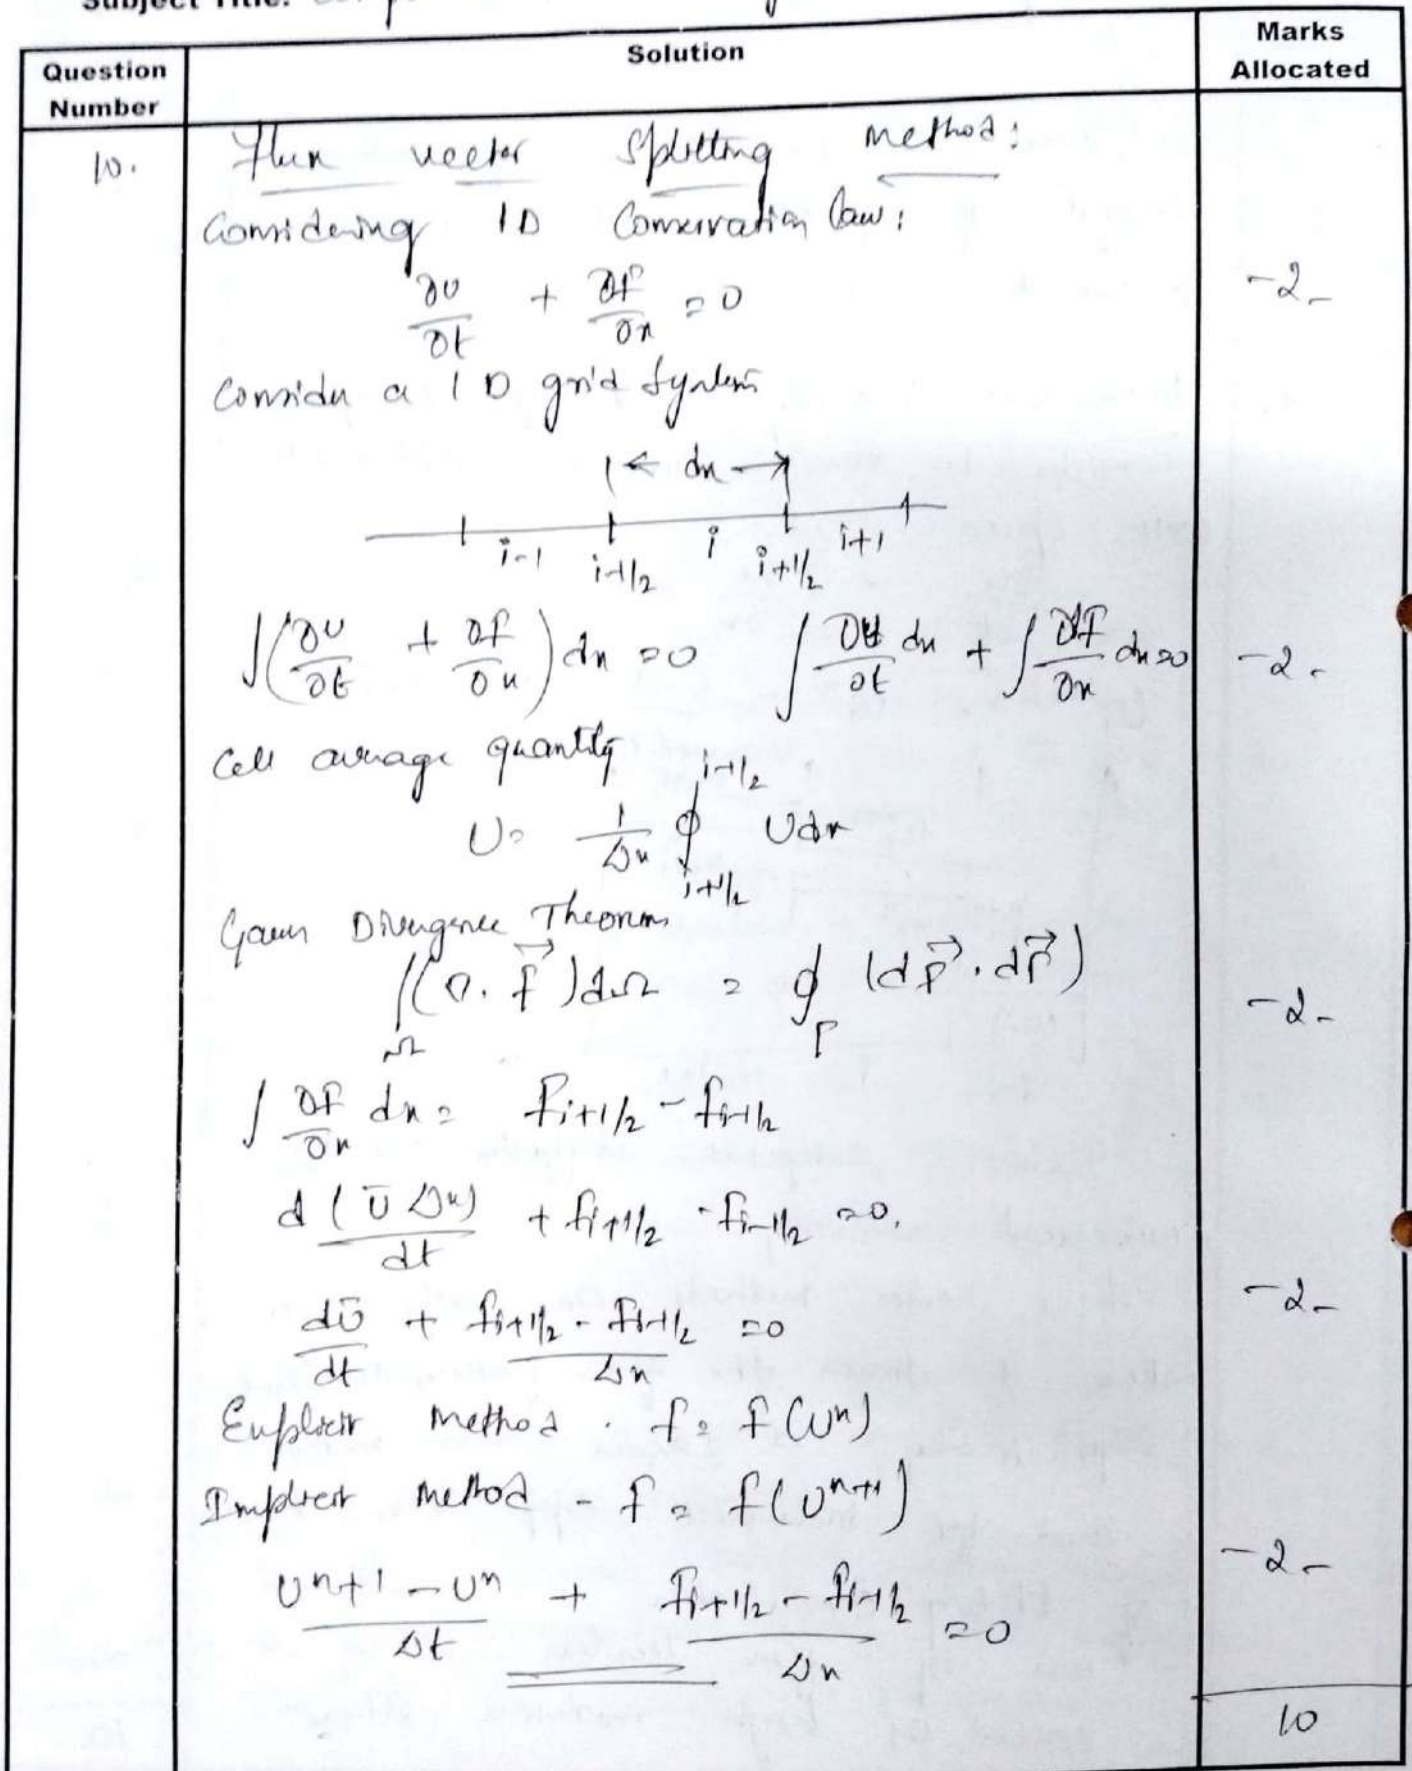 Subject Title:
Question Number
Solution
Marks Allocated
10.
Flux vector splitting method:
Considering 1D Conservation law:
∂U/∂t + ∂f/∂x = 0
-2-
Consider a 1D grid system
|← dx →|
i-1 i-1/2 i i+1/2 i+1
∫(∂U/∂t + ∂f/∂x) dx = 0 ∫ ∂U/∂t dx + ∫ ∂f/∂x dx = 0
-2-
Cell average quantity
U = 1/Δx ∮ U dx
i-1/2
i+1/2
Gauss Divergence Theorem
∫Ω (∇. f⃗) dΩ = ∮Γ (df⃗. dΓ⃗)
-2-
∫ ∂f/∂x dx = fi+1/2 - fi-1/2
d(Ū Δx)/dt + fi+1/2 - fi-1/2 = 0.
dŪ/dt + (fi+1/2 - fi-1/2)/Δx = 0
-2-
Explicit method . f = f(Uⁿ)
Implicit method - f = f(Uⁿ⁺¹)
(Uⁿ⁺¹ - Uⁿ)/Δt + (fi+1/2 - fi-1/2)/Δx = 0
-2-
10